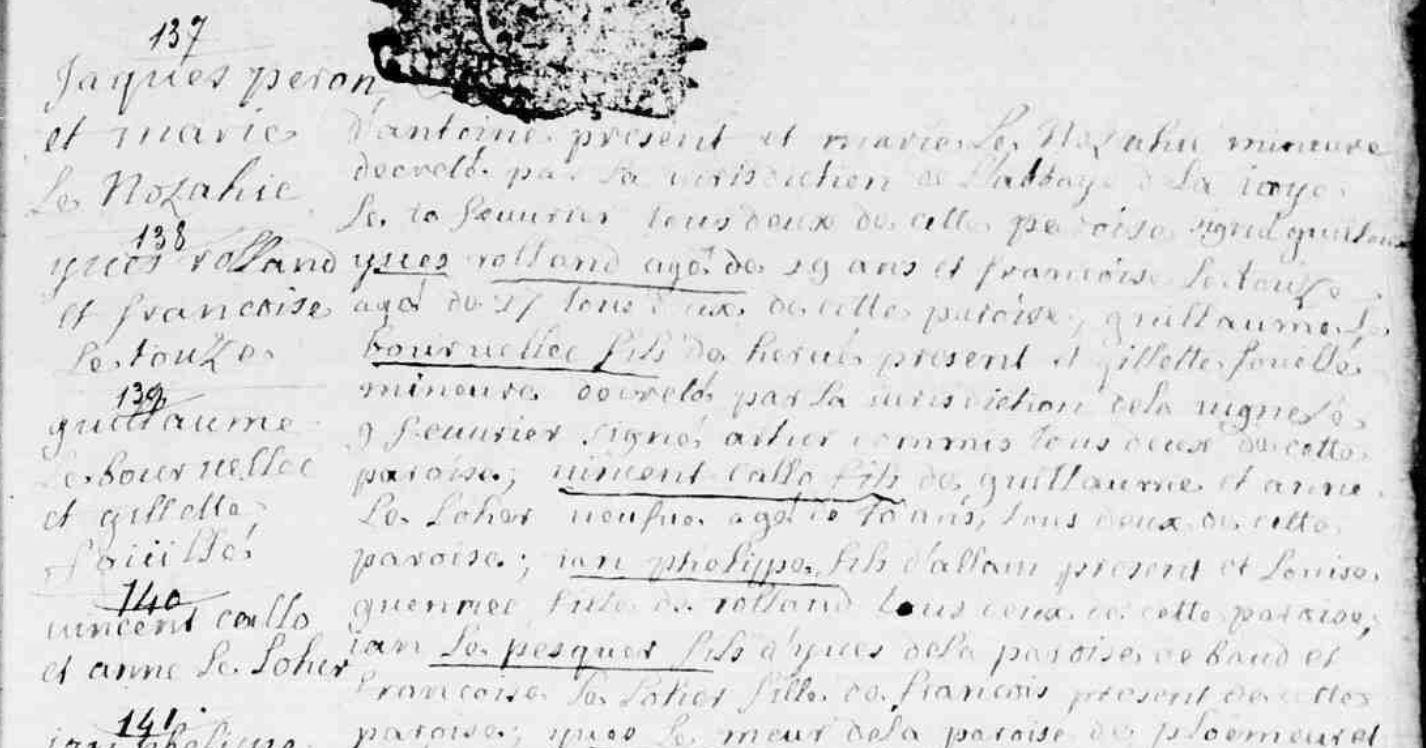 137
Jaques peron
et marie
Le Nozahic
138
yues rolland
et francoise
Le touze
139
guillaume
Le bouruellec
et gillette
fouillé
140
uincent callo
et anne Le Loher
141
ian phelippe
d'antoine present et marie Le Nozahic mineure
decreté par La iurisdiction de L'abbaye de La ioye
Le 10 feuurier tous deux de cette paroise signé
yues rolland agé de 29 ans et francoise Le touze
agé de 27 tous deux de cette paroise, guillaume Le
bouruellec fils de herué present et gillette fouillé
mineure decreté par La iurisdiction dela uigne Le
9 feuurier signé artur commis tous deux de cette
paroise; uincent callo fils de guillaume et anne
Le Loher ueufue agé de 30 ans, tous deux de cette
paroise; ian phelippe fils d'allain present et Louise
guennec fille de rolland tous deux de cette paroise,
ian Le pesquer fils d'yues dela paroise de baud et
francoise Le Loher fille de francois present de cette
paroise; yues Le meur dela paroise de ploemeur et